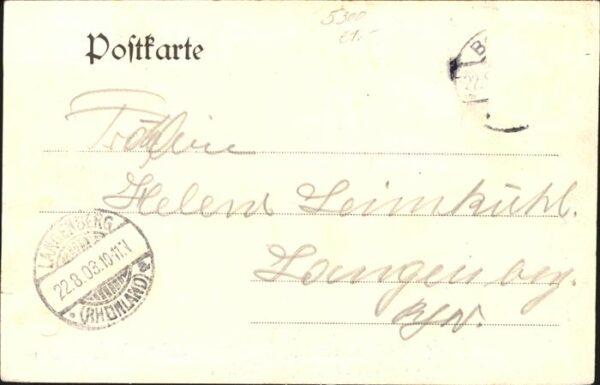 5300
21.-
Postkarte
Fräulein
Helene Leimkühl.
Langenberg.
LANGENBERG
22.8.03.10-11.V
* (RHEINLAND) a